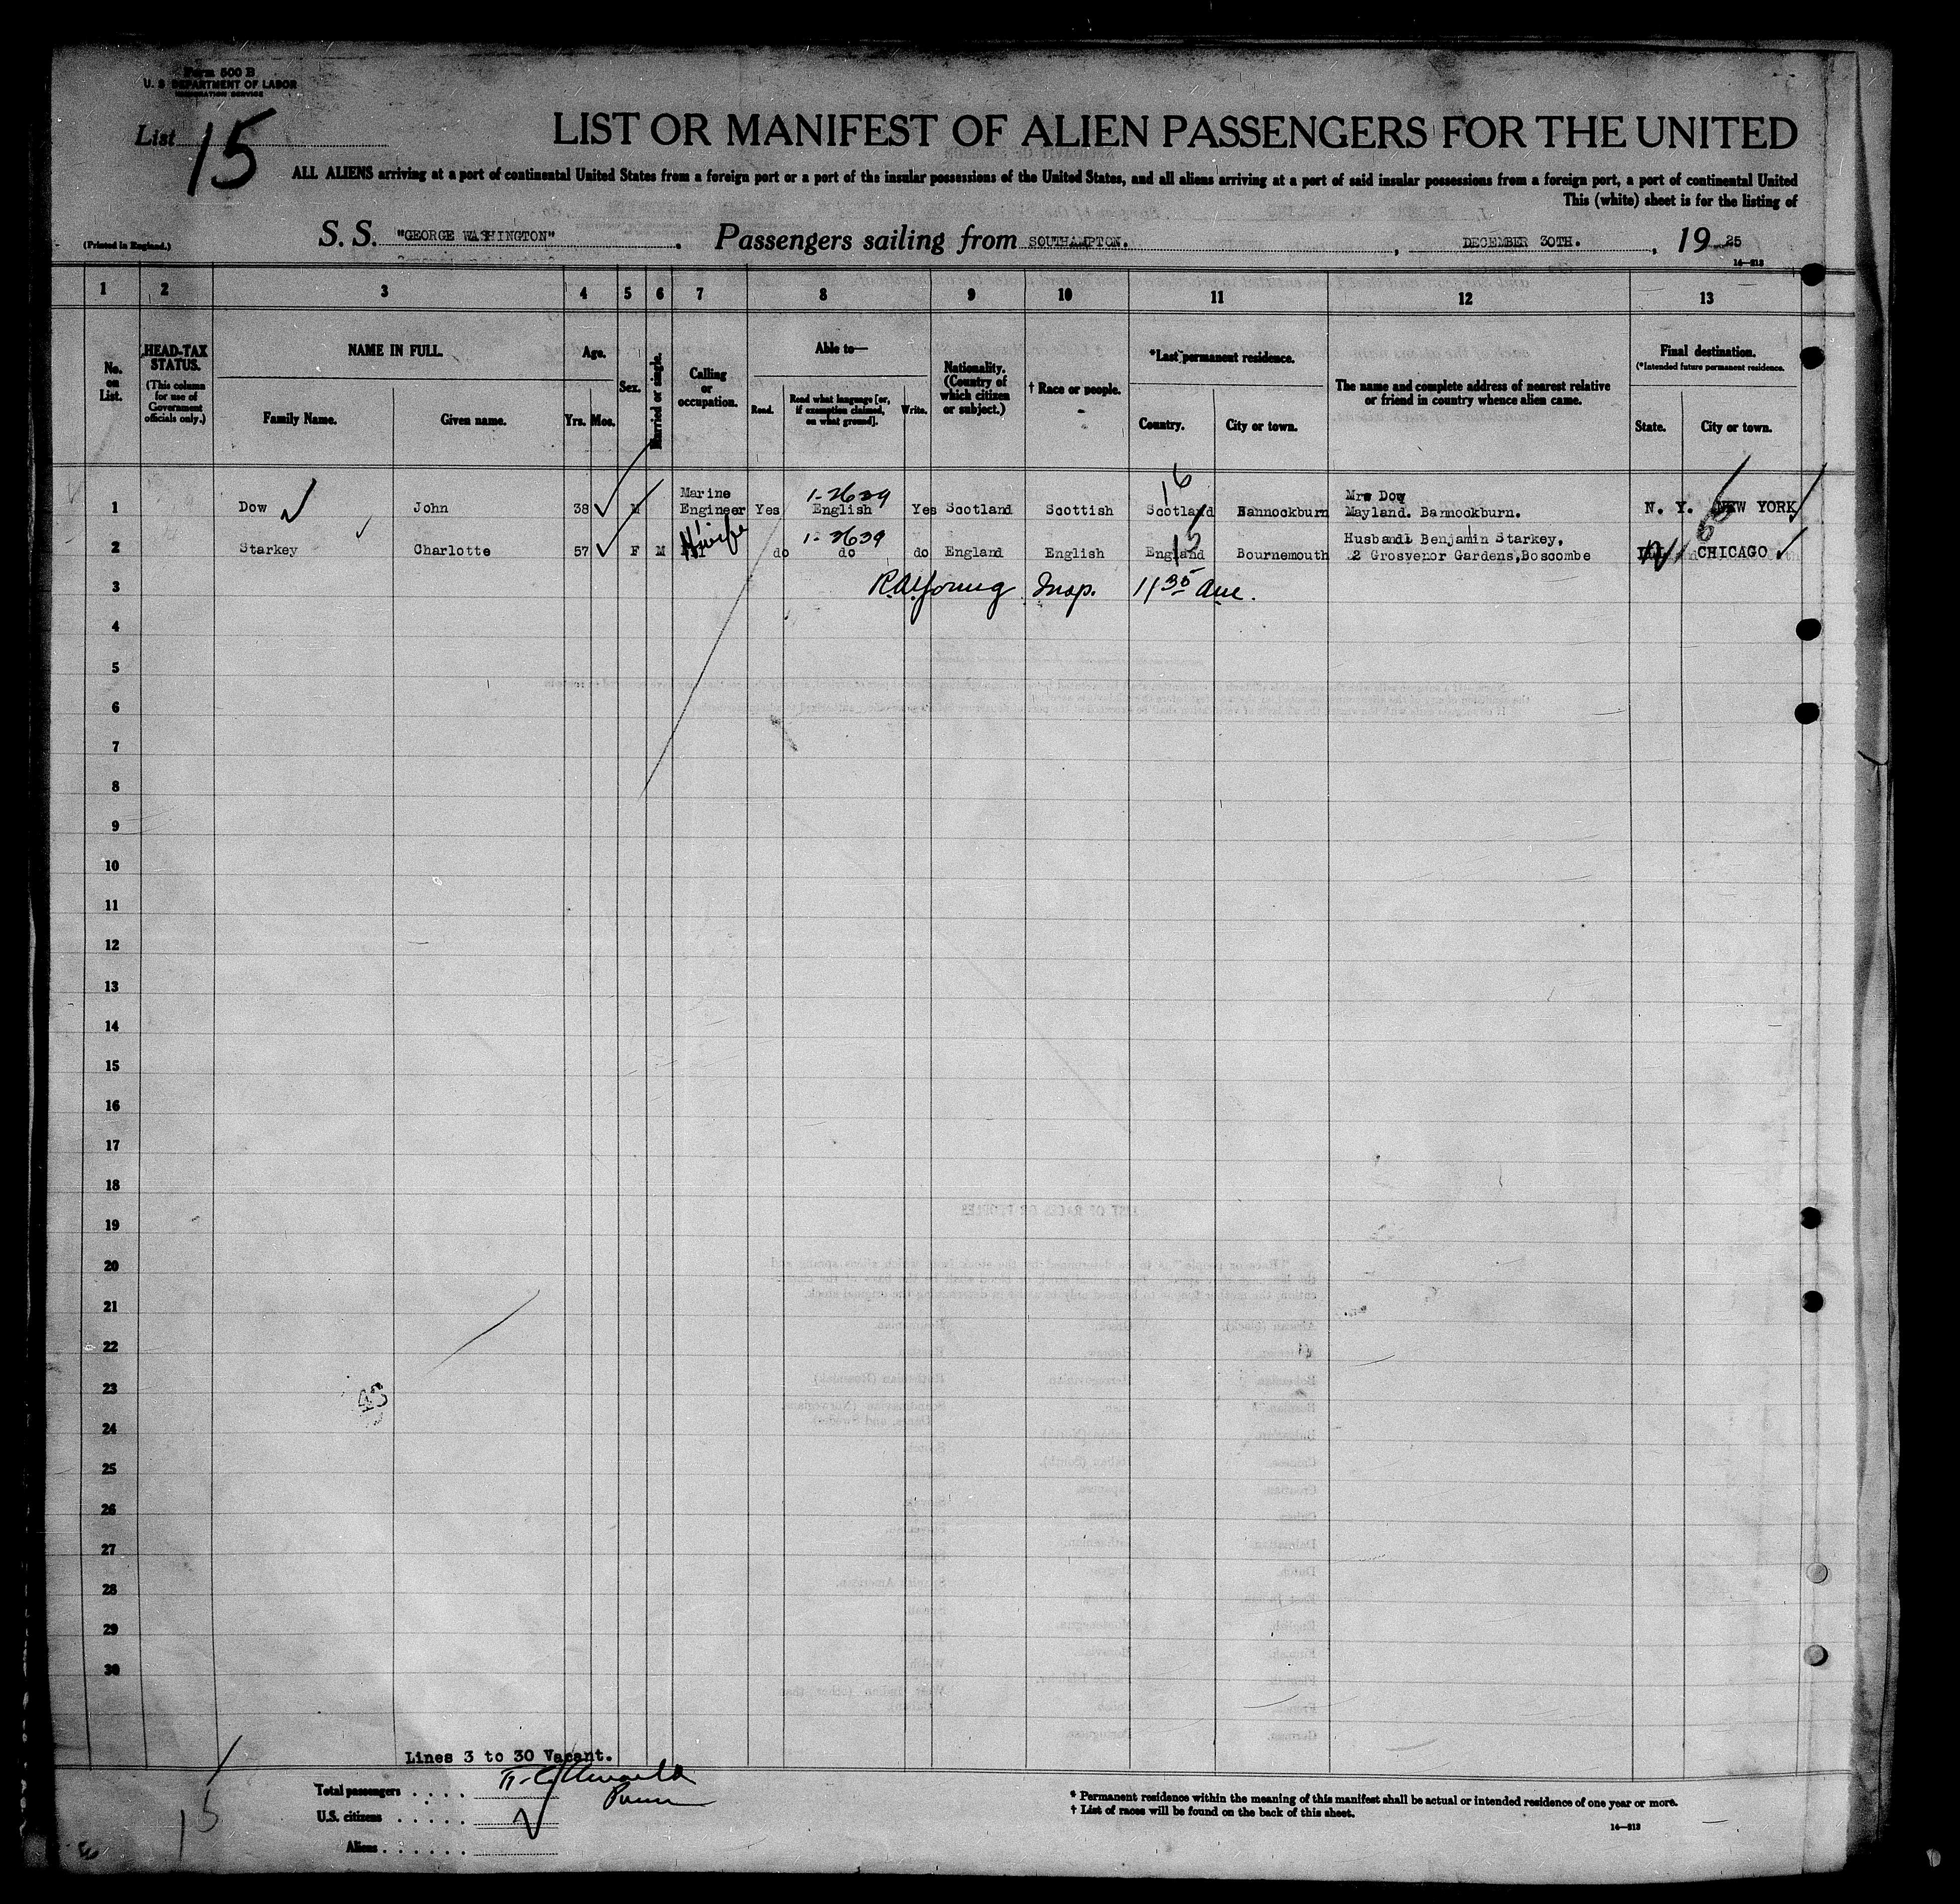 Form 500 B
U. S. DEPARTMENT OF LABOR
IMMIGRATION SERVICE
List 15
LIST OR MANIFEST OF ALIEN PASSENGERS FOR THE UNITED
ALL ALIENS arriving at a port of continental United States from a foreign port or a port of the insular possessions of the United States, and all aliens arriving at a port of said insular possessions from a foreign port, a port of continental United
This (white) sheet is for the listing of
(Printed in England.)
S. S. "GEORGE WASHINGTON" . Passengers sailing from SOUTHAMPTON. , DECEMBER 30TH. , 19 25
14—213
1 2 3 4 5 6 7 8 9 10 11 12 13
No. on List.
HEAD-TAX STATUS.
(This column for use of Government officials only.)
NAME IN FULL.
Family Name. Given name.
Age.
Yrs. Mos.
Sex.
Married or single.
Calling or occupation.
Able to—
Read. Read what language [or, if exemption claimed, on what ground]. Write.
Nationality. (Country of which citizen or subject.)
† Race or people.
*Last permanent residence.
Country. City or town.
The name and complete address of nearest relative or friend in country whence alien came.
Final destination.
(*Intended future permanent residence.
State. City or town.
1 Dow John 38 M Marine Engineer Yes 1-2639 English Yes Scotland Scottish 16 Scotland Bannockburn Mrs Dow Mayland. Bannockburn. N. Y. NEW YORK
2 Starkey Charlotte 57 F M H'wife do 1-2639 do do England English 15 England Bournemouth Husband Benjamin Starkey, 2 Grosvenor Gardens, Boscombe CHICAGO
3 R.A. Young Insp. 11 35
4
5
6
7
8
9
10
11
12
13
14
15
16
17
18
19
20
21
22
23
24
25
26
27
28
29
30
Lines 3 to 30 Vacant.
Total passengers . . . .
U.S. citizens . . . . .
Aliens . . . . . .
15
* Permanent residence within the meaning of this manifest shall be actual or intended residence of one year or more.
† List of races will be found on the back of this sheet.
14—213